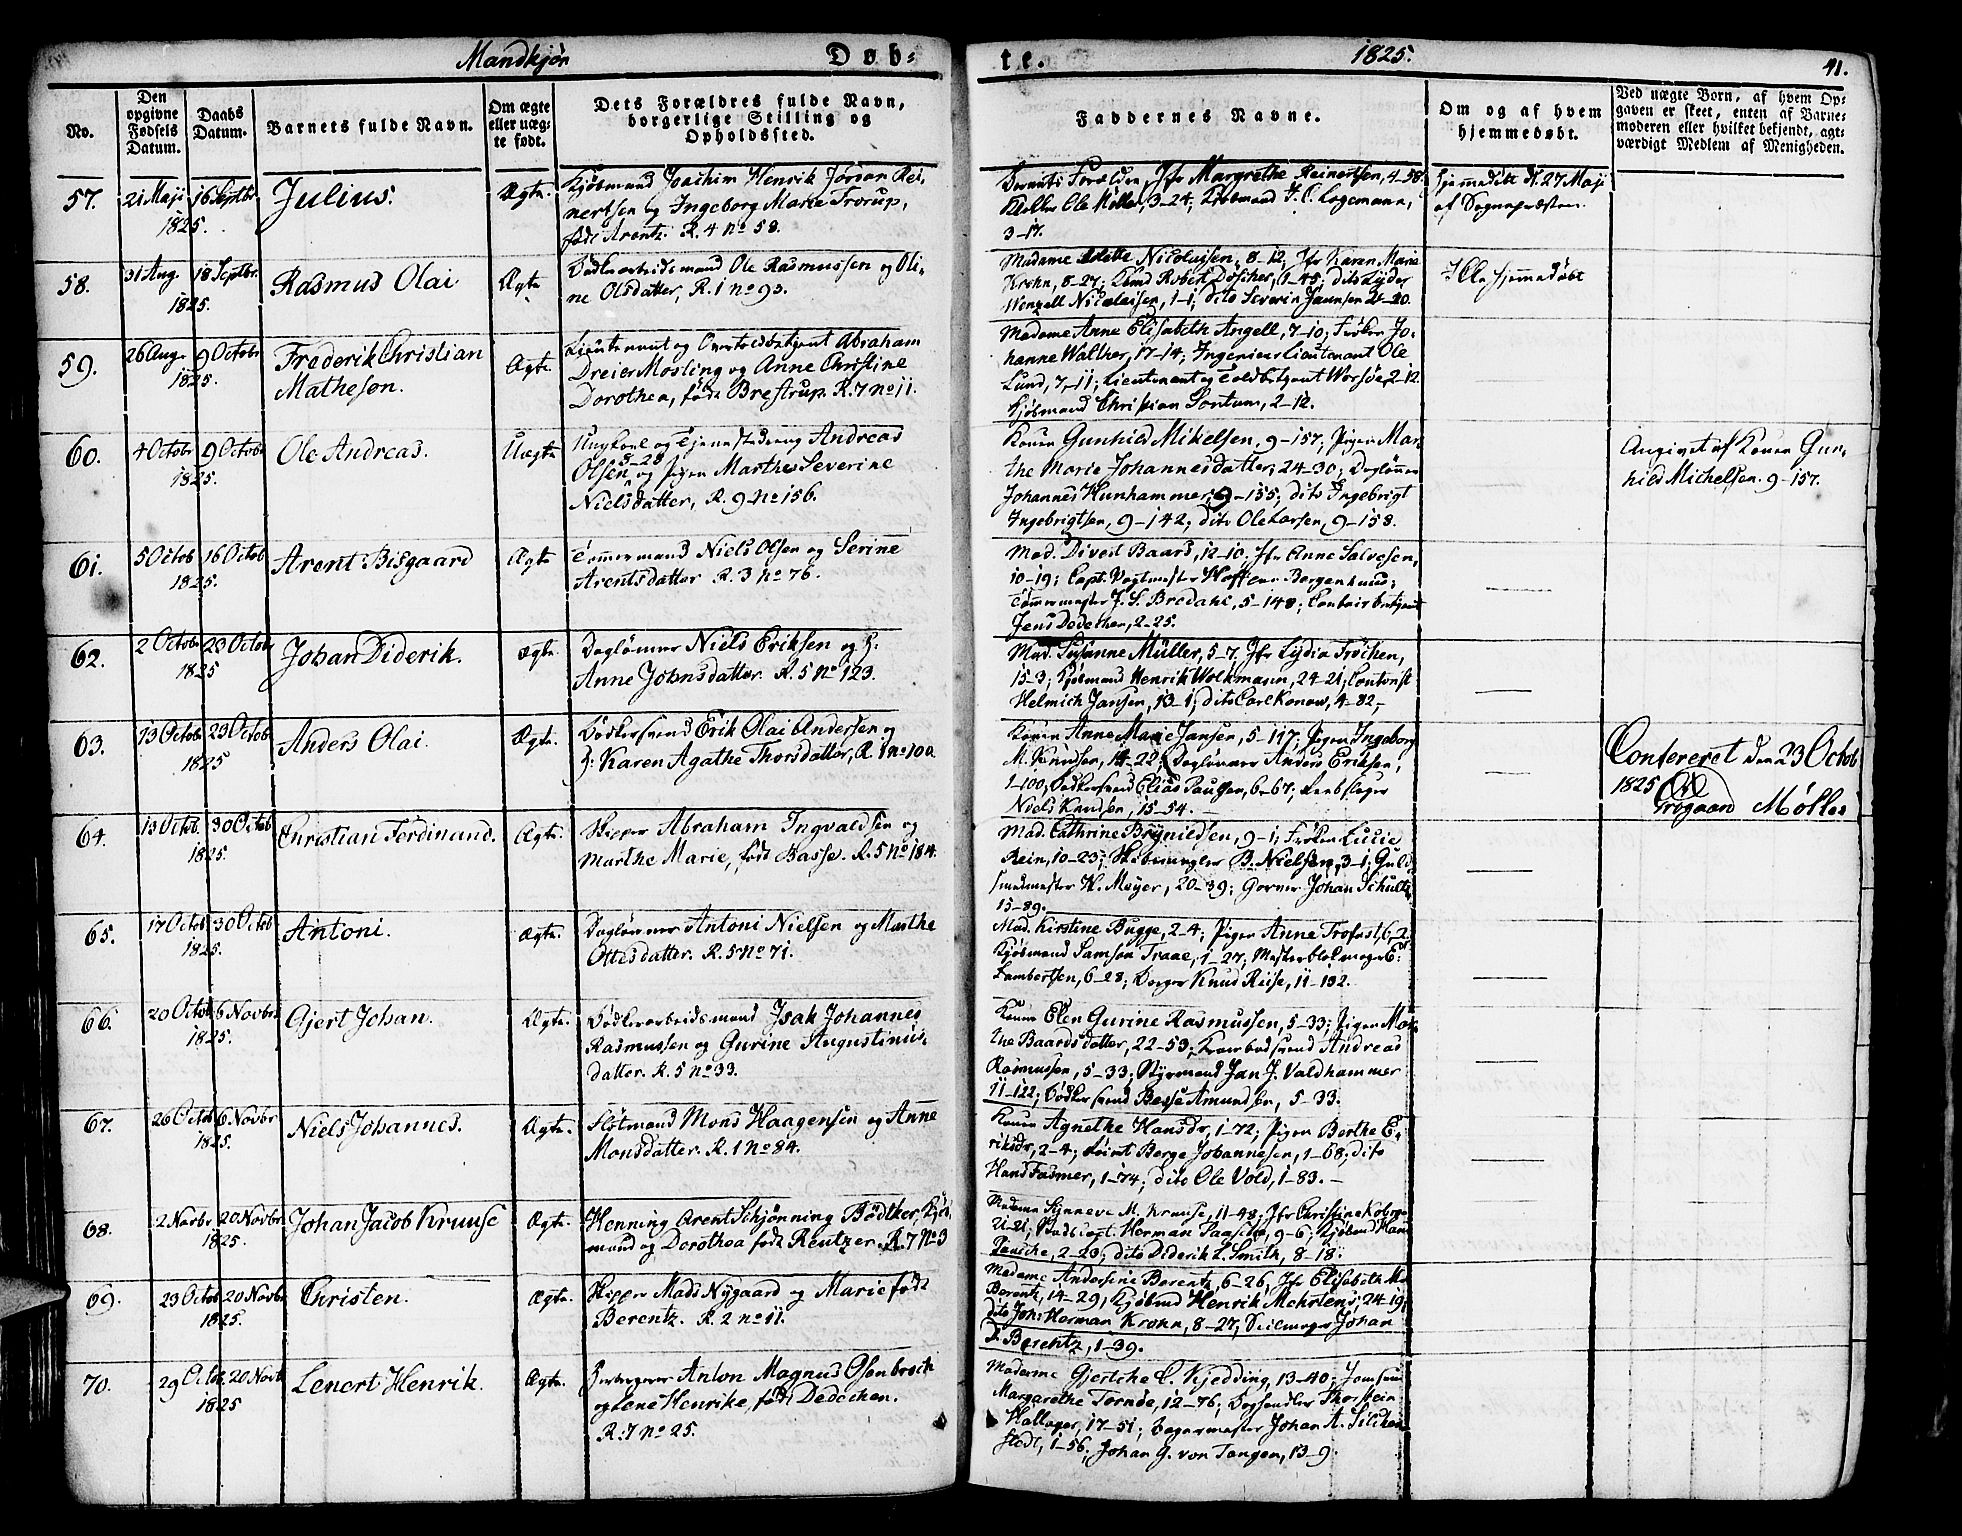 Mandkjøn
Døb-
te.
1825.
41.
No.
Den opgivne Fødsels Datum.
Daabs Datum.
Barnets fulde Navn.
Om ægte eller uægte født.
Dets Forældres fulde Navn, borgerlige Stilling og Opholdssted.
Faddernes Navne.
Om og af hvem hjemmedøbt.
Ved uægte Børn, af hvem Opgaven er skeet, enten af Barnemoderen eller hvilket bekjendt, agtværdigt Medlem af Menigheden.
57.
21 Maji 16 Septbr
1825.
Julius.
Ægte.
Kjøbmand Joachim Henrik Jørgen Rei-
nertsen og Ingeborg Marie Trorup,
født Arentz. R. 4 No 58.
Barnets Forældre, Jfr Margrethe Reinertsen, 4-58
Ole Møller, 3-24; Kjøbmand J. C. Logemann,
3-17.
Hjemmedøbt d. 27 Maji
af Sognepræsten.
58.
31 Aug. 18 Septbr.
1825.
Rasmus Olai
Ægte
Bødkerarbeidsmand Ole Rasmussen og Oli-
ne Olsdatter, R. 1 No 93.
Madame Nicolaisen, 8-12; Jfr Karen Marie
Krohn, 8-27; Kbmd Robert Döscher, 1-45; dito Lyder
Wenzell Nicolaisen, 1-1; dito Severin Jaunsen 21-20.
Ikke hjemmedøbt
59.
26 Aug. 9 Octobr
1825.
Frederik Christian
Matheson.
Ægte
Lieutenant og Overtoldbetjent Abraham
Dreier Mosling og Anne Christine
Dorothea, født Brestrup. R. 7 No 11.
Madame Anne Elisabeth Angell, 7-10; Frøken Jo-
hanne Walther, 17-14; Ingenieur Lieutenant Ole
Lund, 7-11; Lieutenant og Toldbetjent Worsøe, 2-12
Kjøbmand Christian Sontum, 2-12.
60.
4 Octobr 9 Octobr
1825.
Ole Andreas.
Uægte
Ungkarl og Tjenestedreng Andreas
Olsen 3-28 og Pigen Marthe Severine
Nielsdatter, R. 9 No 156.
Konen Gunhild Mikelsen, 9-157; Pigen Mar-
the Marie Johannesdatter, 24-30; Daglønner
Johannes Hunhammer, 9-155; dito Ingebrigt
Ingebrigtsen, 9-142; dito Ole Larsen, 9-158.
Angivet af Konen Gun-
hild Michelsen. 9-157.
61.
5 Octob 16 Octob
1825.
Arent Bisgaard
Ægte
Tømmermand Niels Olsen og Serine
Arentsdatter R. 3 No 76.
Mad. Divert Baars, 12-10; Jfr Anne Salvesen,
10-19; Capt. Vagtmester Hoff paa Bergenhuus;
Tømmermester J. S. Bredahl, 5-148; Contoirbetjent
Jens Dedechen, 2-25.
62.
2 Octobr 23 Octobr
1825
Johan Diderik.
Ægte.
Dagløнner Niels Eriksen og H:
Anne Johnsdatter. R. 5 No 123.
Mad. Susanne Müller, 5-7. Jfr Lydia Frøchen,
15-3; Kjøbmand Henrik Wolkmann, 24-21; Contorist
Helmich Jansen, 13-1; dito Carl Konow, 4-82.-
63.
13 Octobr 23 Octobr
1825
Anders Olai.
Ægte.
Bødkersvend Erik Olai Andersen og
H: Karen Agathe Thorsdatter, R. 1 No 100.
Konen Anne Marie Jansen, 5-117; Pigen Ingeborg
M. Knudsen, 14-22; Dagløнner Anders Eriksen,
1-100; Bødkersvend Elias Paulsen, 6-67; Reebslager
Niels Knudsen, 15-54.
Confereret den 23 Octob
1825
Møller
64.
13 Octob. 30 Octob
1825.
Christian Ferdinand.
Ægte.
Skipper Abraham Ingvaldsen og
Marthe Marie, født Basse. R. 5 No 184.
Mad. Cathrine Brynildsen, 9-1; Frøken Lucie
Rein, 10-23; Skibsmægler B. Nielsen, 3-1; Guld-
smedmester H. Meyer, 20-39; Garver Johan Schultz
15-89.
65.
17 Octob 30 Octob
1825.
Antoni.
Ægte.
Dagløнner Antoni Nielsen og Marthe
Ottesdatter. R. 5 No 71.
Mad. Kirstine Bugge, 2-4; Pigen Anne Trofast, 6-2
Kjøbmand Samson Traae, 1-27; Mesterblokmager E:
Lambertsen, 6-28; Borger Knud Riise, 11-132.
66.
20 Octob 6 Novbr
1825.
Gjert Johan.
Ægte.
Bødkerarbeidsmand Isak Johannes
Rasmussen og Gurine Augustinus-
datter. R. 5 No 33.
Konen Elen Gurine Rasmussen, 5-33; Pigen Mar-
the Baardsdatter, 22-53; Andreas
Rasmussen, 5-33; Styrmand Jan J. Valdhammer
11-122; Bødkersvend Basse Amundsen, 5-33.
67.
26 Octob 6 Novbr
1825.
Niels Johannes.
Ægte.
Flotmand Mons Haagensen og Anne
Monsdatter. R. 1 No 84.
Konen Agnethe Hansdr, 1-72; Pigen Berthe E-
riksdr, 2-4; Berge Johannesen, 1-68; dito
Hans Fasmer, 1-74; dito Ole Vold, 1-83.-
68.
2 Novbr 20 Novbr
1825.
Johan Jacob Kruuse
Ægte.
Henning Arent Schjønning Bødtker, Kjøb-
mand og Dorothea født Reutzer. R. 7 No 3
Madame Synneve M. Kruuse, 11-48; Jfr Christine Koboe
21-21; Herman Paasche, 9-6; Kjøbmd Hans
Paasche, 2-23; dito Diderik L. Smith, 8-18.
69.
23 Octob 20 Novbr
1825.
Christen.
Ægte.
Skipper Mads Nygaard og Marie født
Berentz. R. 2 No 11.
Madame Andersine Berentz, 6-26; Jfr Elisabeth M.
Berentz, 14-29; Kjøbmd Henrik Mehrtens, 24-19;
dito Joh: Herman Krohn, 8-27; Seilmager Johan
D. Berentz, 1-39.
70.
29 Octob 20 Novb
1825
Lenert Henrik.
Ægte.
Anton Magnus Osenbroch
og Lene Henrike, født Dedechen.
R. 7 No 25.
Madame Gjertche C. Kjedding, 13-40; Jomfrue
Margarethe Tornøe, 12-76; Thorstein
Hallager, 17-51; Bagermester Johan A. Silcken-
stedt, 1-56; Johan G. von Tangen, 13-9.